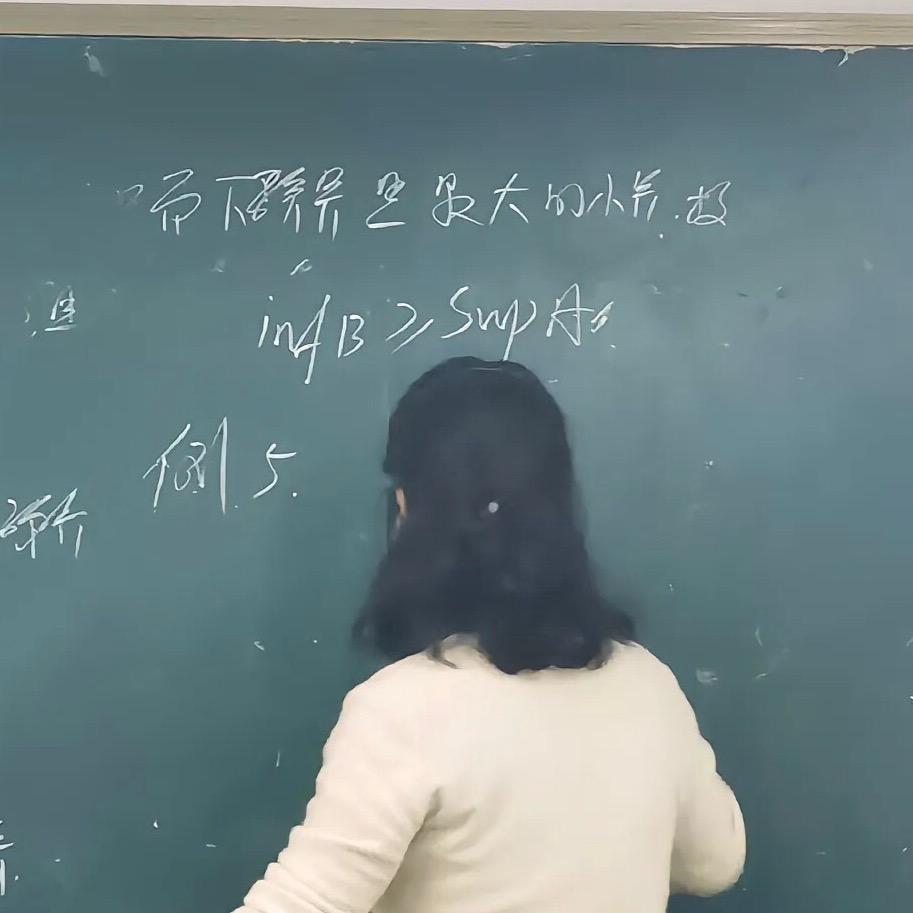 而下确界是最大的下界.故
且
inf B ≥ sup A.
例 5.